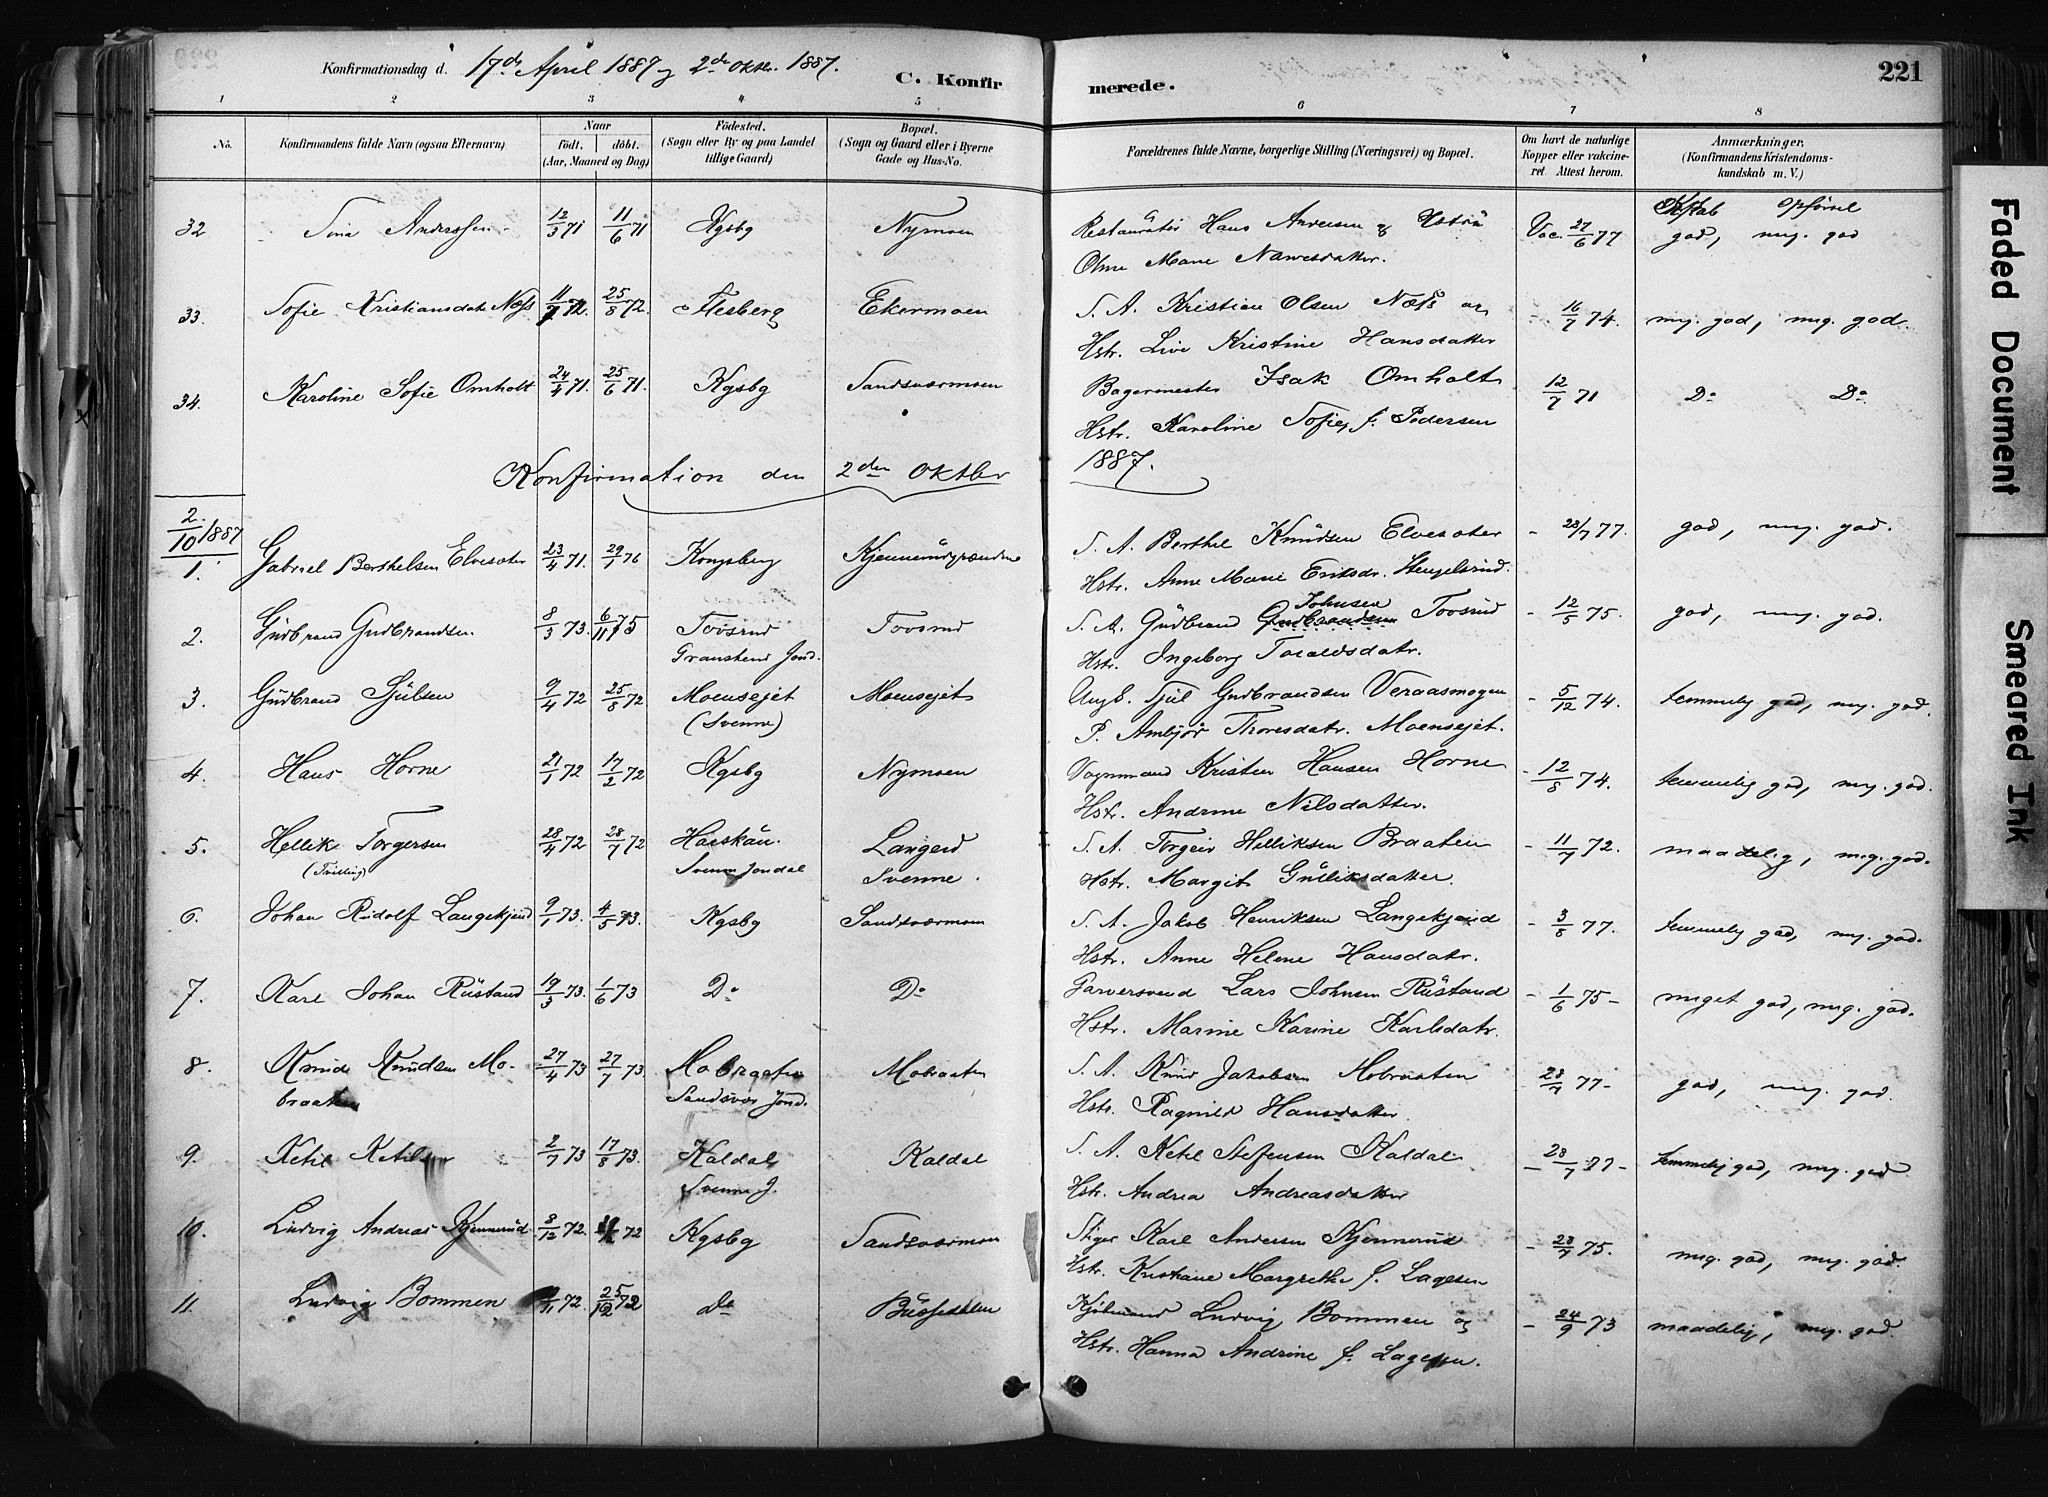 Konfirmationsdag d. 17de April 1887 og 2de Oktbr. 1887.
C. Konfirmerede.
221
1 2 3 4 5 6 7 8
No.
Konfirmandens fulde Navn (ogsaa Efternavn)
Naar
födt. döbt.
(Aar, Maaned og Dag)
Födested.
(Sogn eller By og paa Landet
tillige Gaard)
Bopæl.
(Sogn og Gaard eller i Byerne
Gade og Hus-No.
Forældrenes fulde Navne, borgerlige Stilling (Næringsvei) og Bopæl.
Om havt de naturlige
Kopper eller vakcine-
ret Attest herom.
Anmærkninger.
(Konfirmandens Kristendoms-
kundskab m. V.)
Kskab Opförsel
32 Tina Anderssen 12/3 71 11/6 71 Kgsby Nymoen Restauratör Hans Andersen og Hstru Vac. 27/6 77 god, mg. god
Oline Marie Navesdatter.
33. Sofie Kristiansdatr Næss 11/7 72. 25/8 72. Flesberg Ekermoen S. A. Kristian Olsen Næss og - 16/7 74. mg. god, mg. god.
Hstr. Live Kristine Hansdatter
34. Karoline Sofie Omholt 24/4 71. 25/6 71. Kgsbg Sandsværmoen Bagermester Isak Omholt 12/7 71 Do Do
Hstr. Karoline Sofie f. Pedersen
Konfirmation den 2den Oktbr 1887.
2/10 1887
1. Gabriel Berthelsen Elvesæter 23/4 71. 29/1 76 Kongsberg S. A. Berthel Knudsen Elvesæter - 28/7 77. god, mg. god.
Hstr. Anne Marie Eriksdr. Stengelsrud.
2. Gudbrand Gudbrandsen. 8/3 73. 6/11 75 Toosrud Toosrud S. A. Gudbrand Gudbrandsen Johnsen Toosrud - 12/5 75. god, mg. god.
Jond. Hstr. Ingeborg Toraldsdatr.
3. Gudbrand Sjulsen 9/4 72 25/8 72 Moensejet Moensejet Ungk. Sjul Gudbrandsen Veraasmogen - 5/12 74. temmelig god, mg. god.
(Svenne) P. Ambjör Thoresdatr. Moensejet.
4. Hans Horne 21/1 72 17/2 72 Kgsbg Nymoen Vognmand Kristen Hansen Horne - 12/8 74. temmelig god, mg. god.
Hstr. Andrine Nilsdatter.
5. Hellik Torgersen 28/4 72 28/7 72 Langerd S. A. Torgeir Helliksen Braaten - 11/7 72. maadelig, mg. god.
(Tvilling) Svenne Jondal Svenne. Hstr. Margit Gulliksdatter.
6. Johan Rudolf Langekjend 9/1 73. 4/5 73. Kgsbg Sandsværmoen S. A. Jakob Henriksen Langekjend - 3/8 77. temmelig god, mg. god.
Hstr. Anne Helene Hansdatr.
7. Karl Johan Rustand 19/3 73. 1/6 73 Do Do Garversvend Lars Johnsen Rustand - 1/6 75 - meget god, mg. god.
Hstr. Marine Karine Karlsdatr.
8. Knud Knudsen Mo- 27/4 73 27/7 73 Mobraaten Mobraaten S. A. Knud Jakobsen Mobraaten - 28/7 77 - god, mg. god.
braaten Sandsvær Jond. Hstr. Ragnild Hansdatter.
9. Ketil Ketilsen 2/7 73 17/8 73. Kaldal Kaldal S. A. Ketil Stefensen Kaldal - 28/7 77 - temmelig god, mg. god
Svenne J. Hstr. Andrea Andreasdatter
10. Ludvig Andreas Kjennerud 8/12 72. 72 Kgsbg Sandsværmoen Stiger Karl Andersen Kjennerud - 28/7 75. mg. god, mg. god.
Hstr. Kristiane Margrethe f. Lagesen
11. Ludvig Bommen /11 72. 25/12 72 do Kjöbmand Ludvig Bommen og - 24/9 73 maadelig, mg. god.
Hstr. Hanna Andrine f. Lagesen.
Faded Document
Smeared Ink